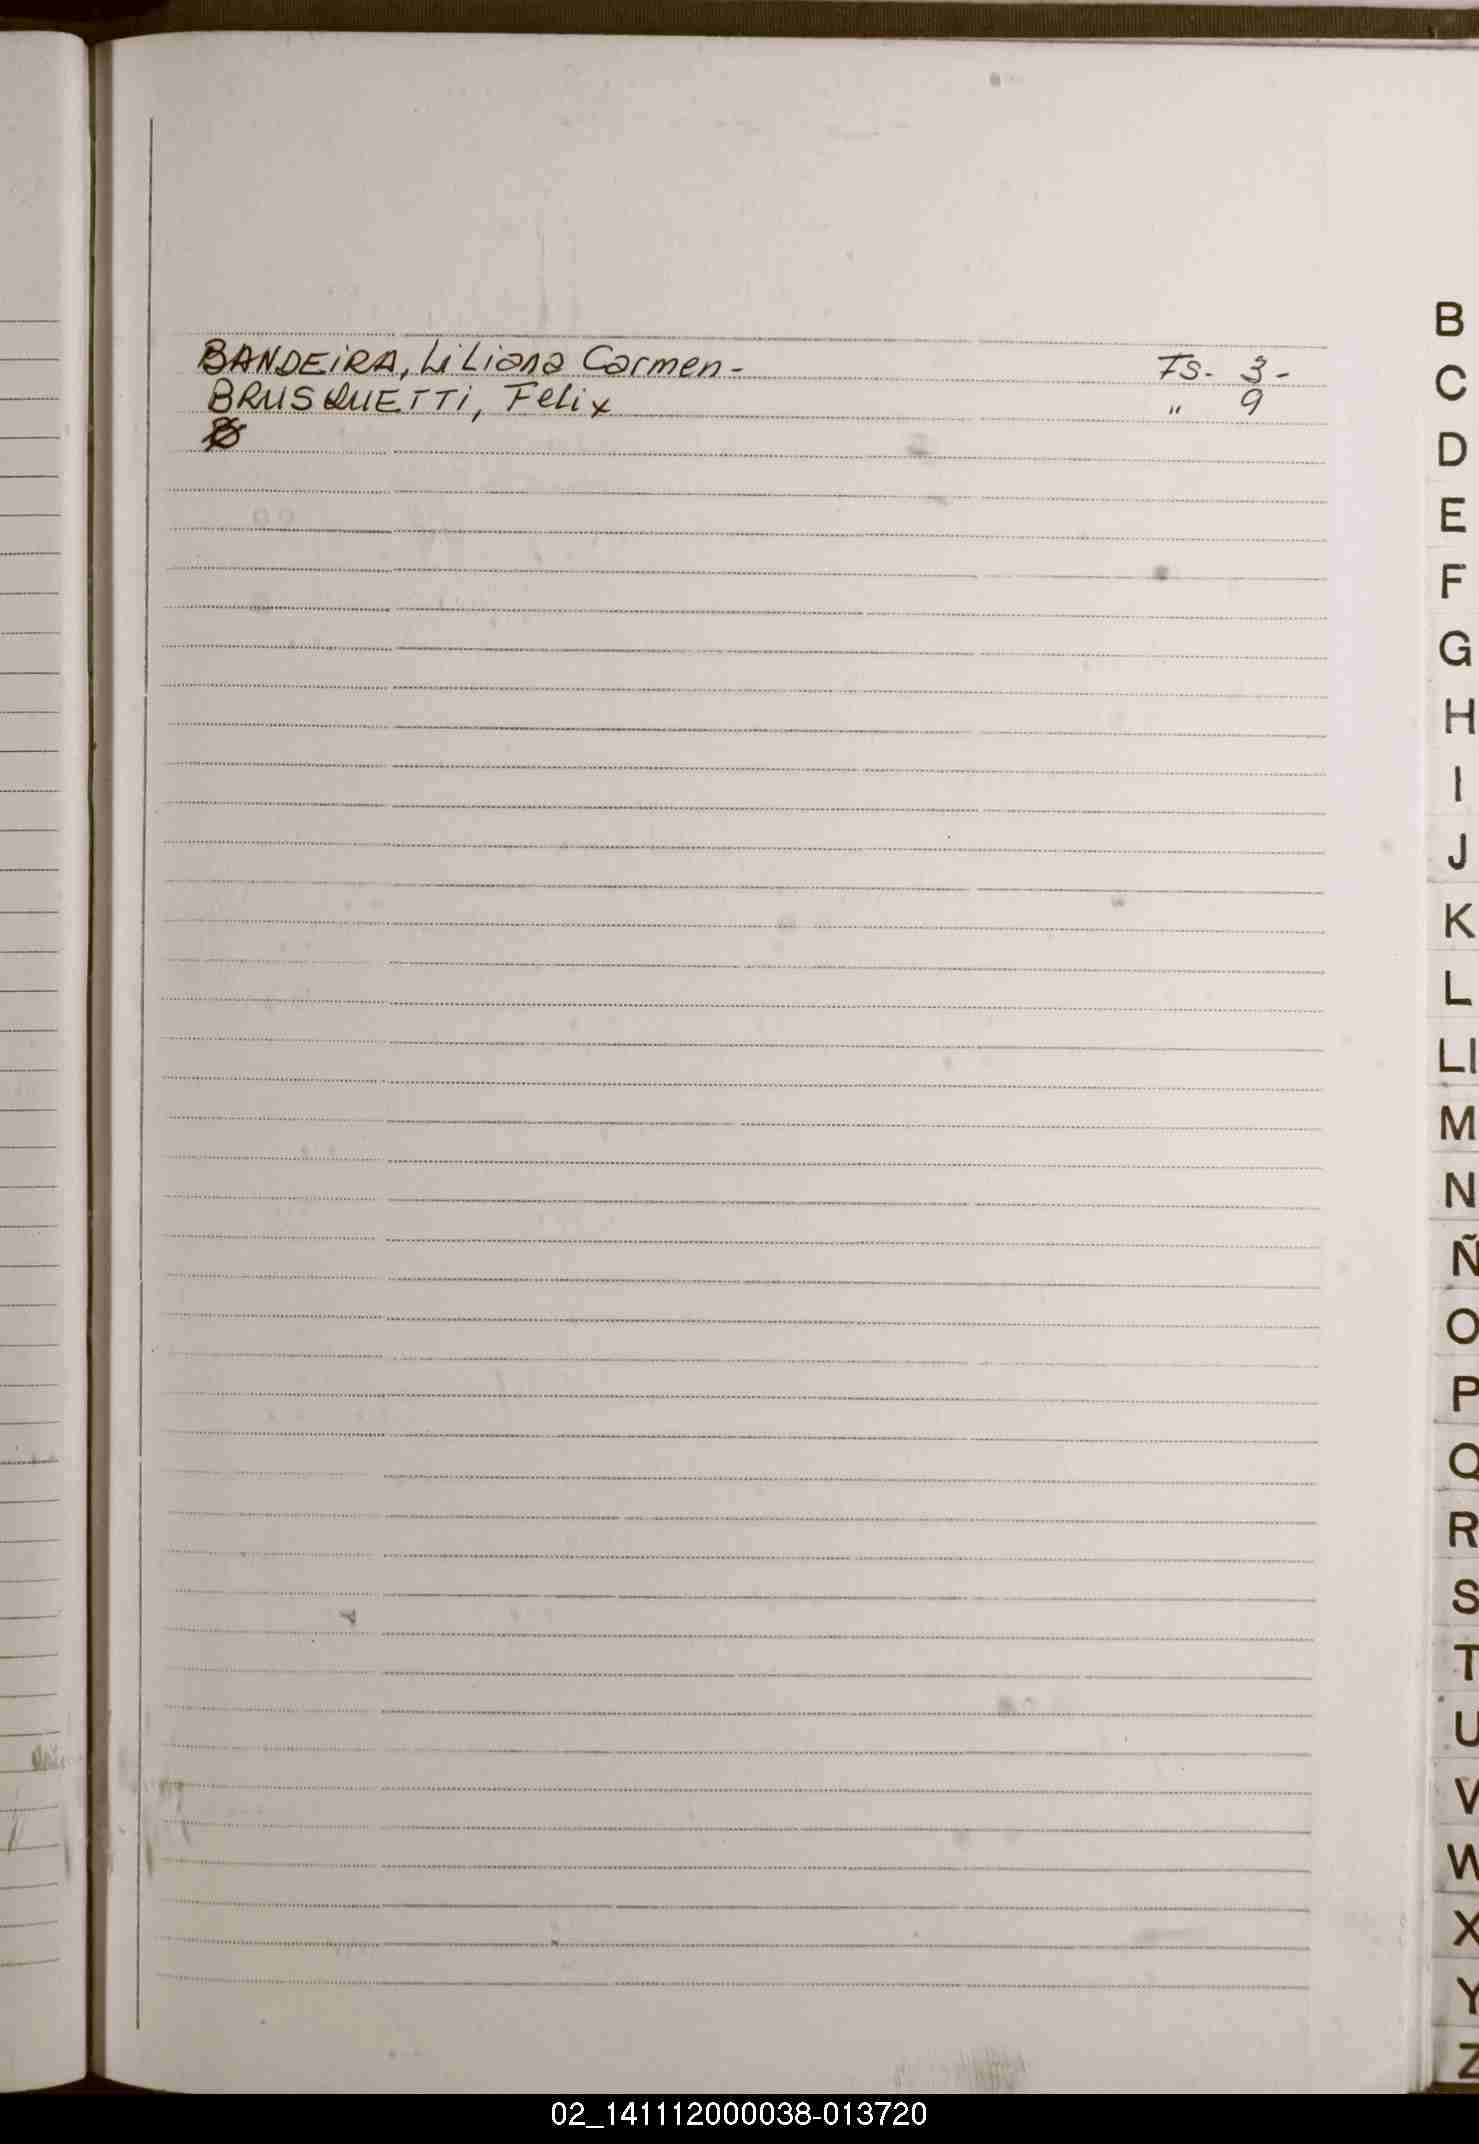 BANDEIRA, Liliana Carmen - Fs. 3 -
BRUSQUETTI, Felix " 9
B
C
D
E
F
G
H
I
J
K
L
Ll
M
N
Ñ
O
P
Q
R
S
T
U
V
W
X
Y
Z
02_141112000038-013720